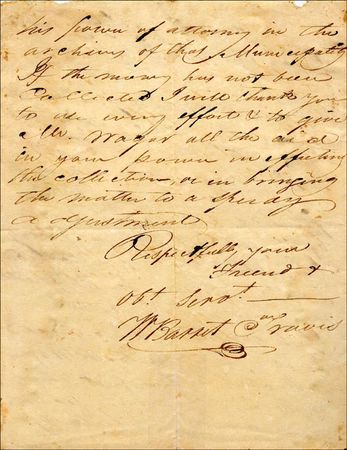 his power of attorney in the
archives of that Municipality
If the money has not been
Collected I will thank you
to use every effort & to give
Mr. Wager all the aid
in your power in effecting
the collection, or in bringing
the matter to a speedy
adjustment
Respectfully your
friend &
Obt. Servt.
Wm Barret Travis